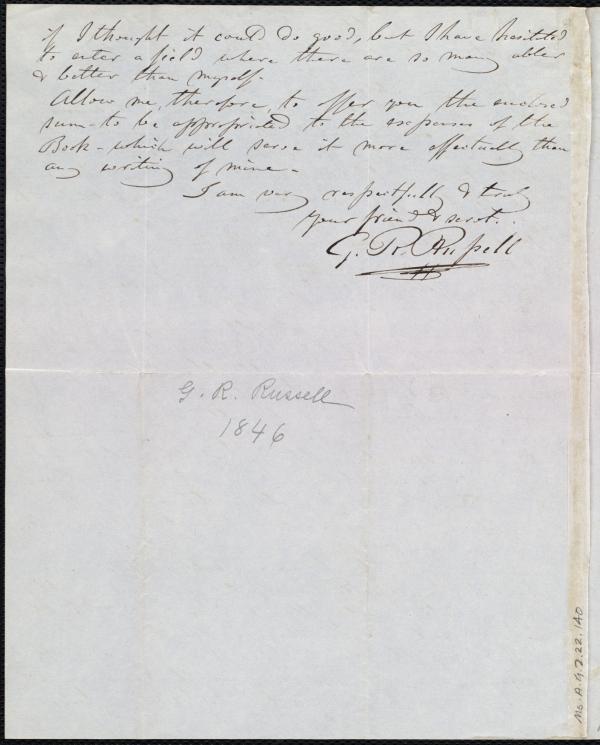 if I thought it could do good, but I have hesitated
to enter a field where there are so many abler
& better than myself.
Allow me, therefore, to offer you the enclosed
sum - to be appropriated to the expenses of the
Book - which will serve it more effectually than
any writing of mine -
I am very respectfully & truly
your friend & servt.
G. R. Russell
G. R. Russell
1846
Ms. A. 9. 2. 22. 140